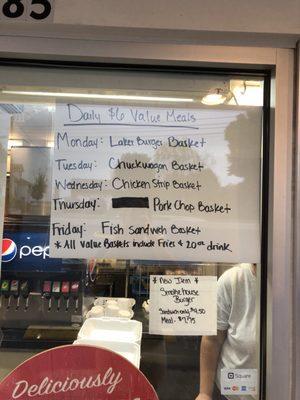 85
Daily $6 Value Meals
Monday: Laker Burger Basket
Tuesday: Chuckwagon Basket
Wednesday: Chicken Strip Basket
Thursday: Pork Chop Basket
Friday: Fish Sandwich Basket
* All Value Baskets include Fries & 20oz drink
pep
* New Item *
Smokehouse
Burger
Sandwich only $4.50
Meal - $7.75
Square
Deliciously